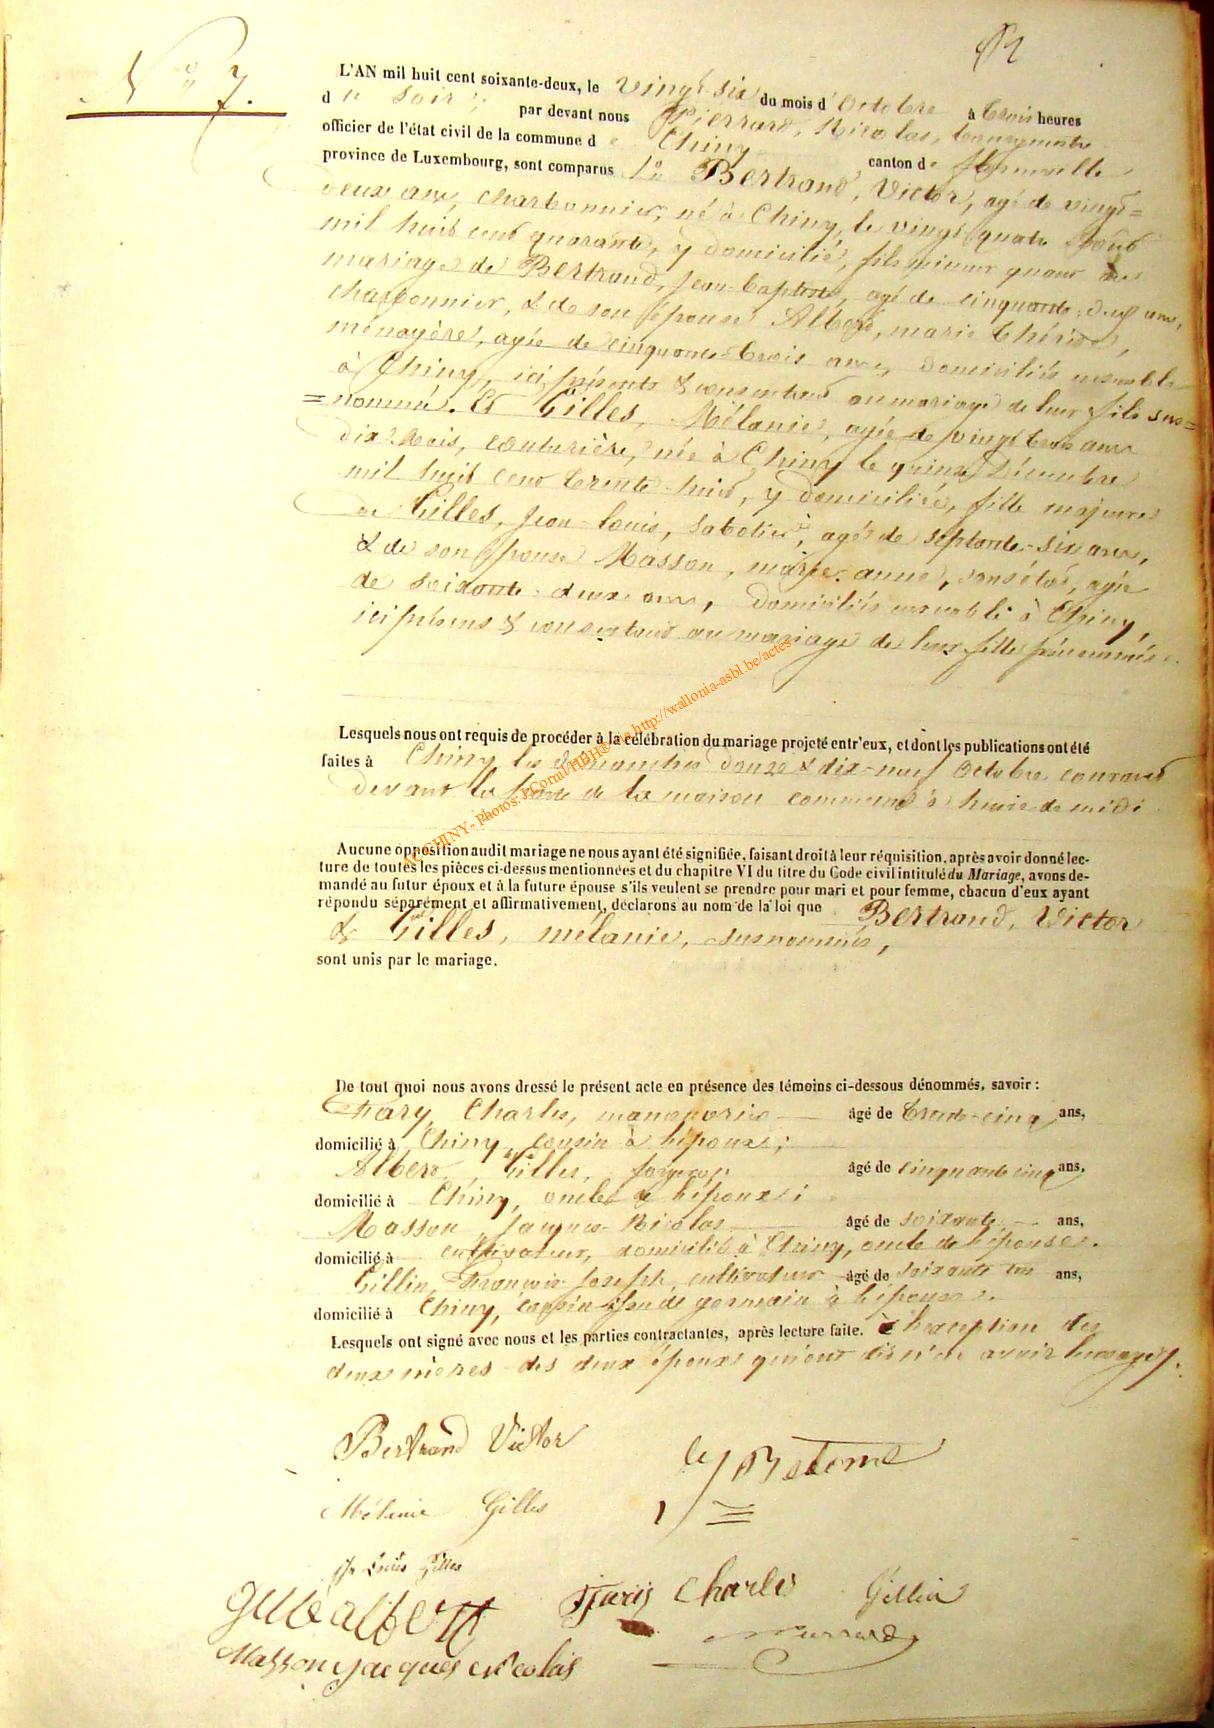 N° 7.
L'AN mil huit cent soixante-deux, le vingt-six du mois d'Octobre à trois heures
du soir par devant nous Pierrard, Nicolas, bourgmestre
officier de l'état civil de la commune de Chiny canton de Florenville
province de Luxembourg, sont comparus 1° Bertrand, Victor, agé de vingt=
deux ans, charbonnier, né à Chiny, le vingt quatre Août
mil huit cent quarante, y domicilié, fils mineur quant au
mariage de Bertrand, Jean-Baptiste, agé de cinquante-deux ans,
charbonnier, & de son épouse Albert, marie Thérèse,
ménagère, agée de cinquante-trois ans, domiciliés ensemble
à Chiny, ici présents & consentant au mariage de leur fils sus=
=nommé. Et Gilles, Mélanie, agée de vingt trois ans
dix mois, couturière, née à Chiny le quinze Décembre
mil huit cent trente-huit, y domiciliée, fille majeure
de Gilles, Jean-Louis, sabotier, agé de septante-six ans,
& de son épouse Masson, marie-anne, sans état, agée
de soixante-deux ans, domiciliés ensemble à Chiny,
ici présens & consentant au mariage de leur fille prénommée.
Lesquels nous ont requis de procéder à la célébration du mariage projeté entr'eux, et dont les publications ont été
faites à Chiny les dimanches douze & dix-neuf Octobre courant
devant la porte de la maison commune à heure de midi
Aucune opposition audit mariage ne nous ayant été signifiée, faisant droit à leur réquisition, après avoir donné lec-
ture de toutes les pièces ci-dessus mentionnées et du chapitre VI du titre du Code civil intitulé du Mariage, avons de-
mandé au futur époux et à la future épouse s'ils veulent se prendre pour mari et pour femme, chacun d'eux ayant
répondu séparément et affirmativement, déclarons au nom de la loi que Bertrand, Victor
& Gilles, mélanie, susnommés,
sont unis par le mariage.
De tout quoi nous avons dressé le présent acte en présence des témoins ci-dessous dénommés, savoir :
Charles, manoeuvrier âgé de trente-cinq ans,
domicilié à Chiny, cousin à l'époux;
Albert, Gilles, forgeron âgé de cinquante cinq ans,
domicilié à Chiny, oncle à l'époux;
Masson, Jacques-Nicolas âgé de soixante ans,
domicilié à cultivateur, domicilié à Chiny, oncle de l'épouse.
Gillin, François-Joseph, cultivateur âgé de soixante un ans,
domicilié à Chiny, cousin issu de germain à l'épouse.
Lesquels ont signé avec nous et les parties contractantes, après lecture faite. à l'exception des
deux mères des deux époux qui ont dit n'en avoir l'usage.
Bertrand Victor
Mélanie Gilles
Jn Louis Gilles
Gille albert Charles Gillin
Masson jacques nicolas Pierrard
AC CHINY - Photos: J.Cornil/HBH© de http://wallonia-asbl.be/actes